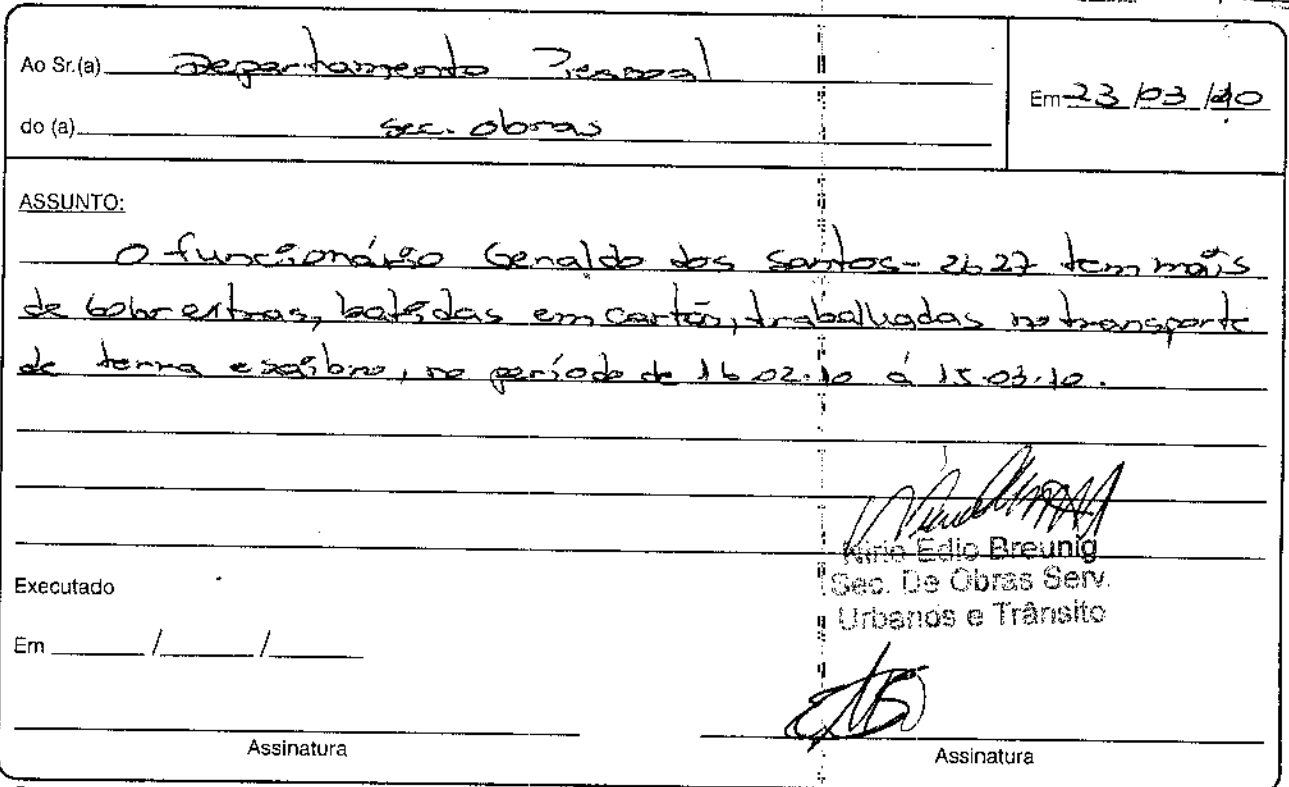 Ao Sr.(a) Departamento Pessoal
Em 23/03/10
do (a) sec. obras
ASSUNTO:
O funcionário Genaldo dos Santos - 2627 tem mais
de 60hr extras, batidas em cartão, trabalhadas no transporte
de terra e saibro, no período de 16.02.10 á 15.03.10.
Edio Breunig
Sec. De Obras Serv.
Urbanos e Trânsito
Executado
Em ____/____/____
Assinatura
Assinatura